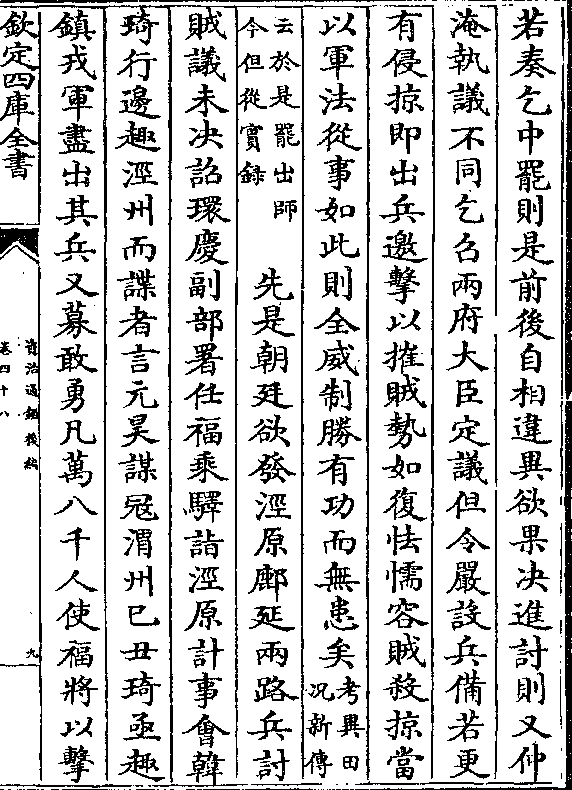 若奏乞中罷則是前後自相違異欲果决進討則又仲
淹執議不同乞召兩府大臣定議但令嚴設兵備若更
有侵掠即出兵邀擊以摧賊勢如復怯懦容賊殺掠當
以軍法從事如此則全威制勝有功而無患矣考異田
况新傳
云於是罷出師
今但從實録
先是朝廷欲發涇原鄜延兩路兵討
賊議未决詔環慶副部署任福乘驛詣涇原計事會韓
琦行邊趣涇州而諜者言元昊謀冦渭州巳丑琦亟趣
鎮戎軍盡出其兵又募敢勇凡萬八千人使福將以擊
欽定四庫全書
資治通鑑後編
卷四十八
九